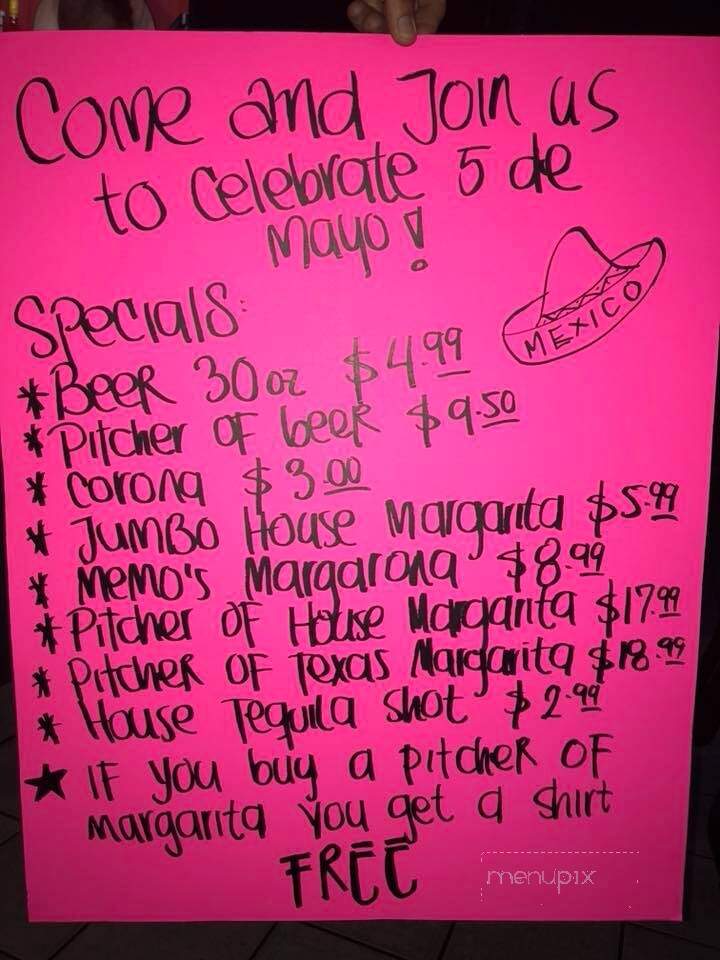 Come and Join us
to celebrate 5 de
Mayo!
MEXICO
Specials:
* Beer 30 oz $4.99
* Pitcher of beer $9.50
* Corona $3.00
* Jumbo House Margarita $5.99
* Memo's Margarona $8.99
* Pitcher of House Margarita $17.99
* Pitcher of Texas Margarita $18.99
* House Tequila shot $2.99
★ If you buy a pitcher of
margarita you get a shirt
FREE
menupix